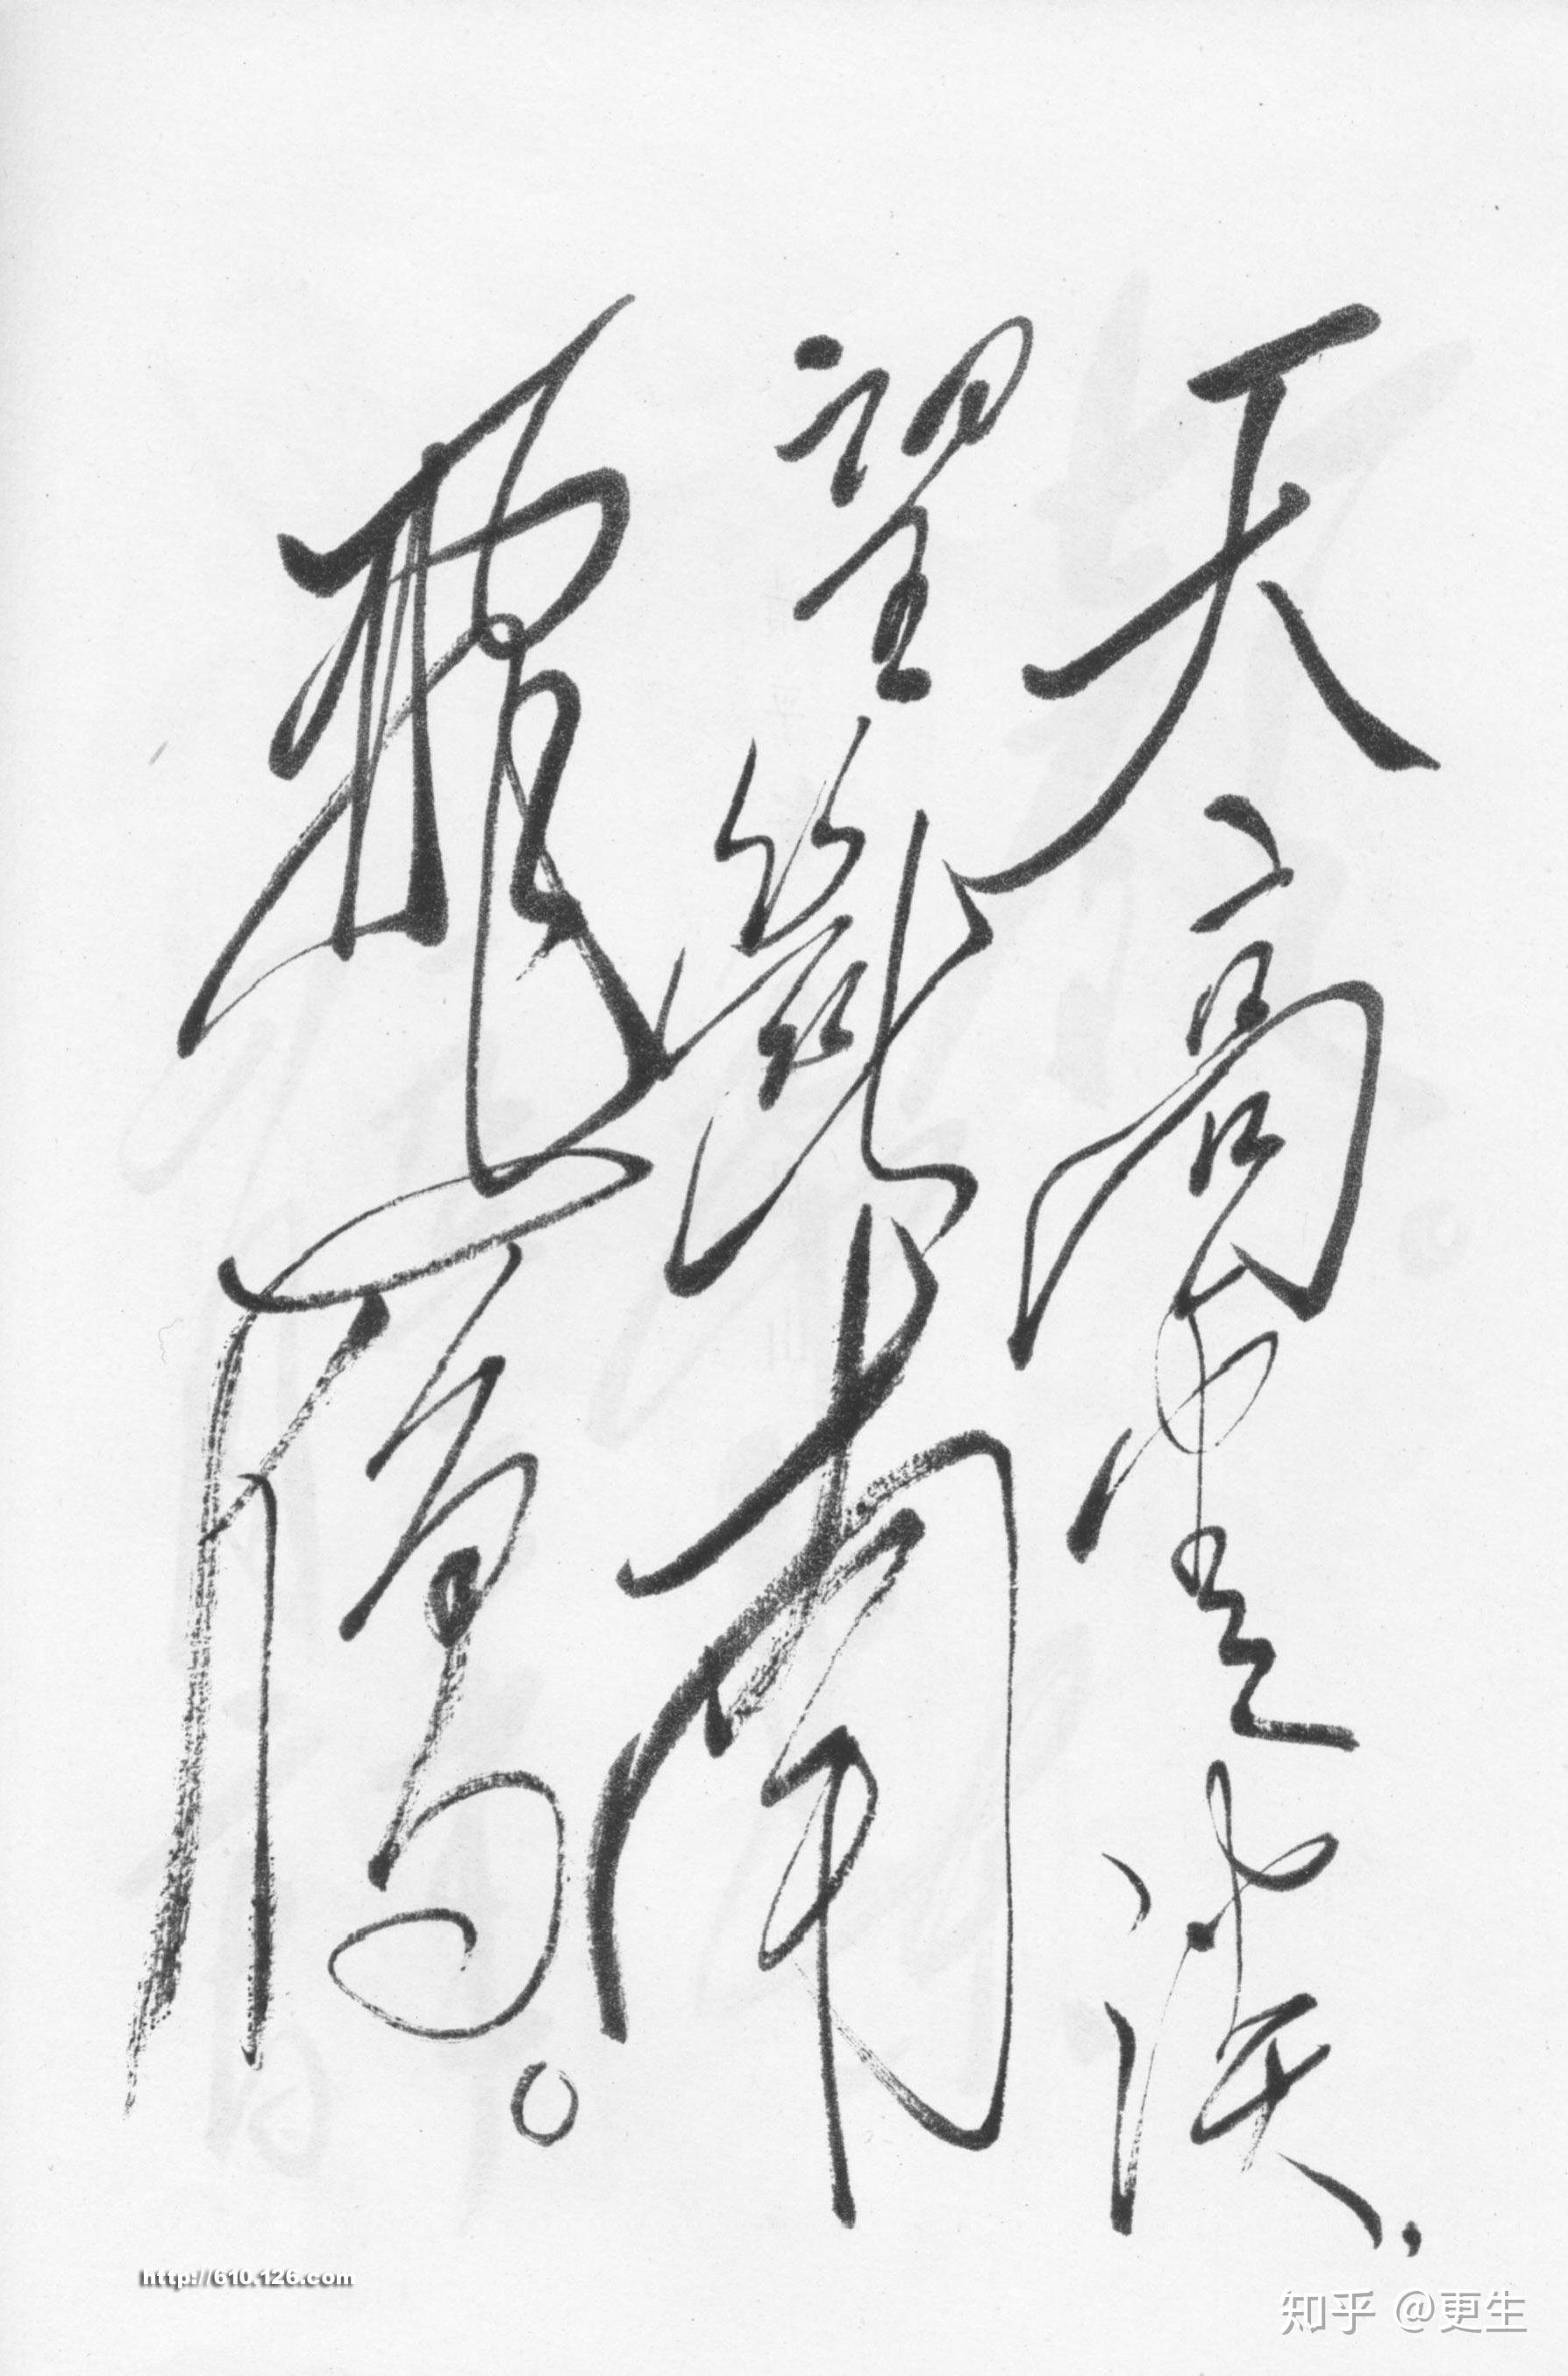 天高雲淡，
望斷南
飛雁。
http://610.126.com
知乎 @更生